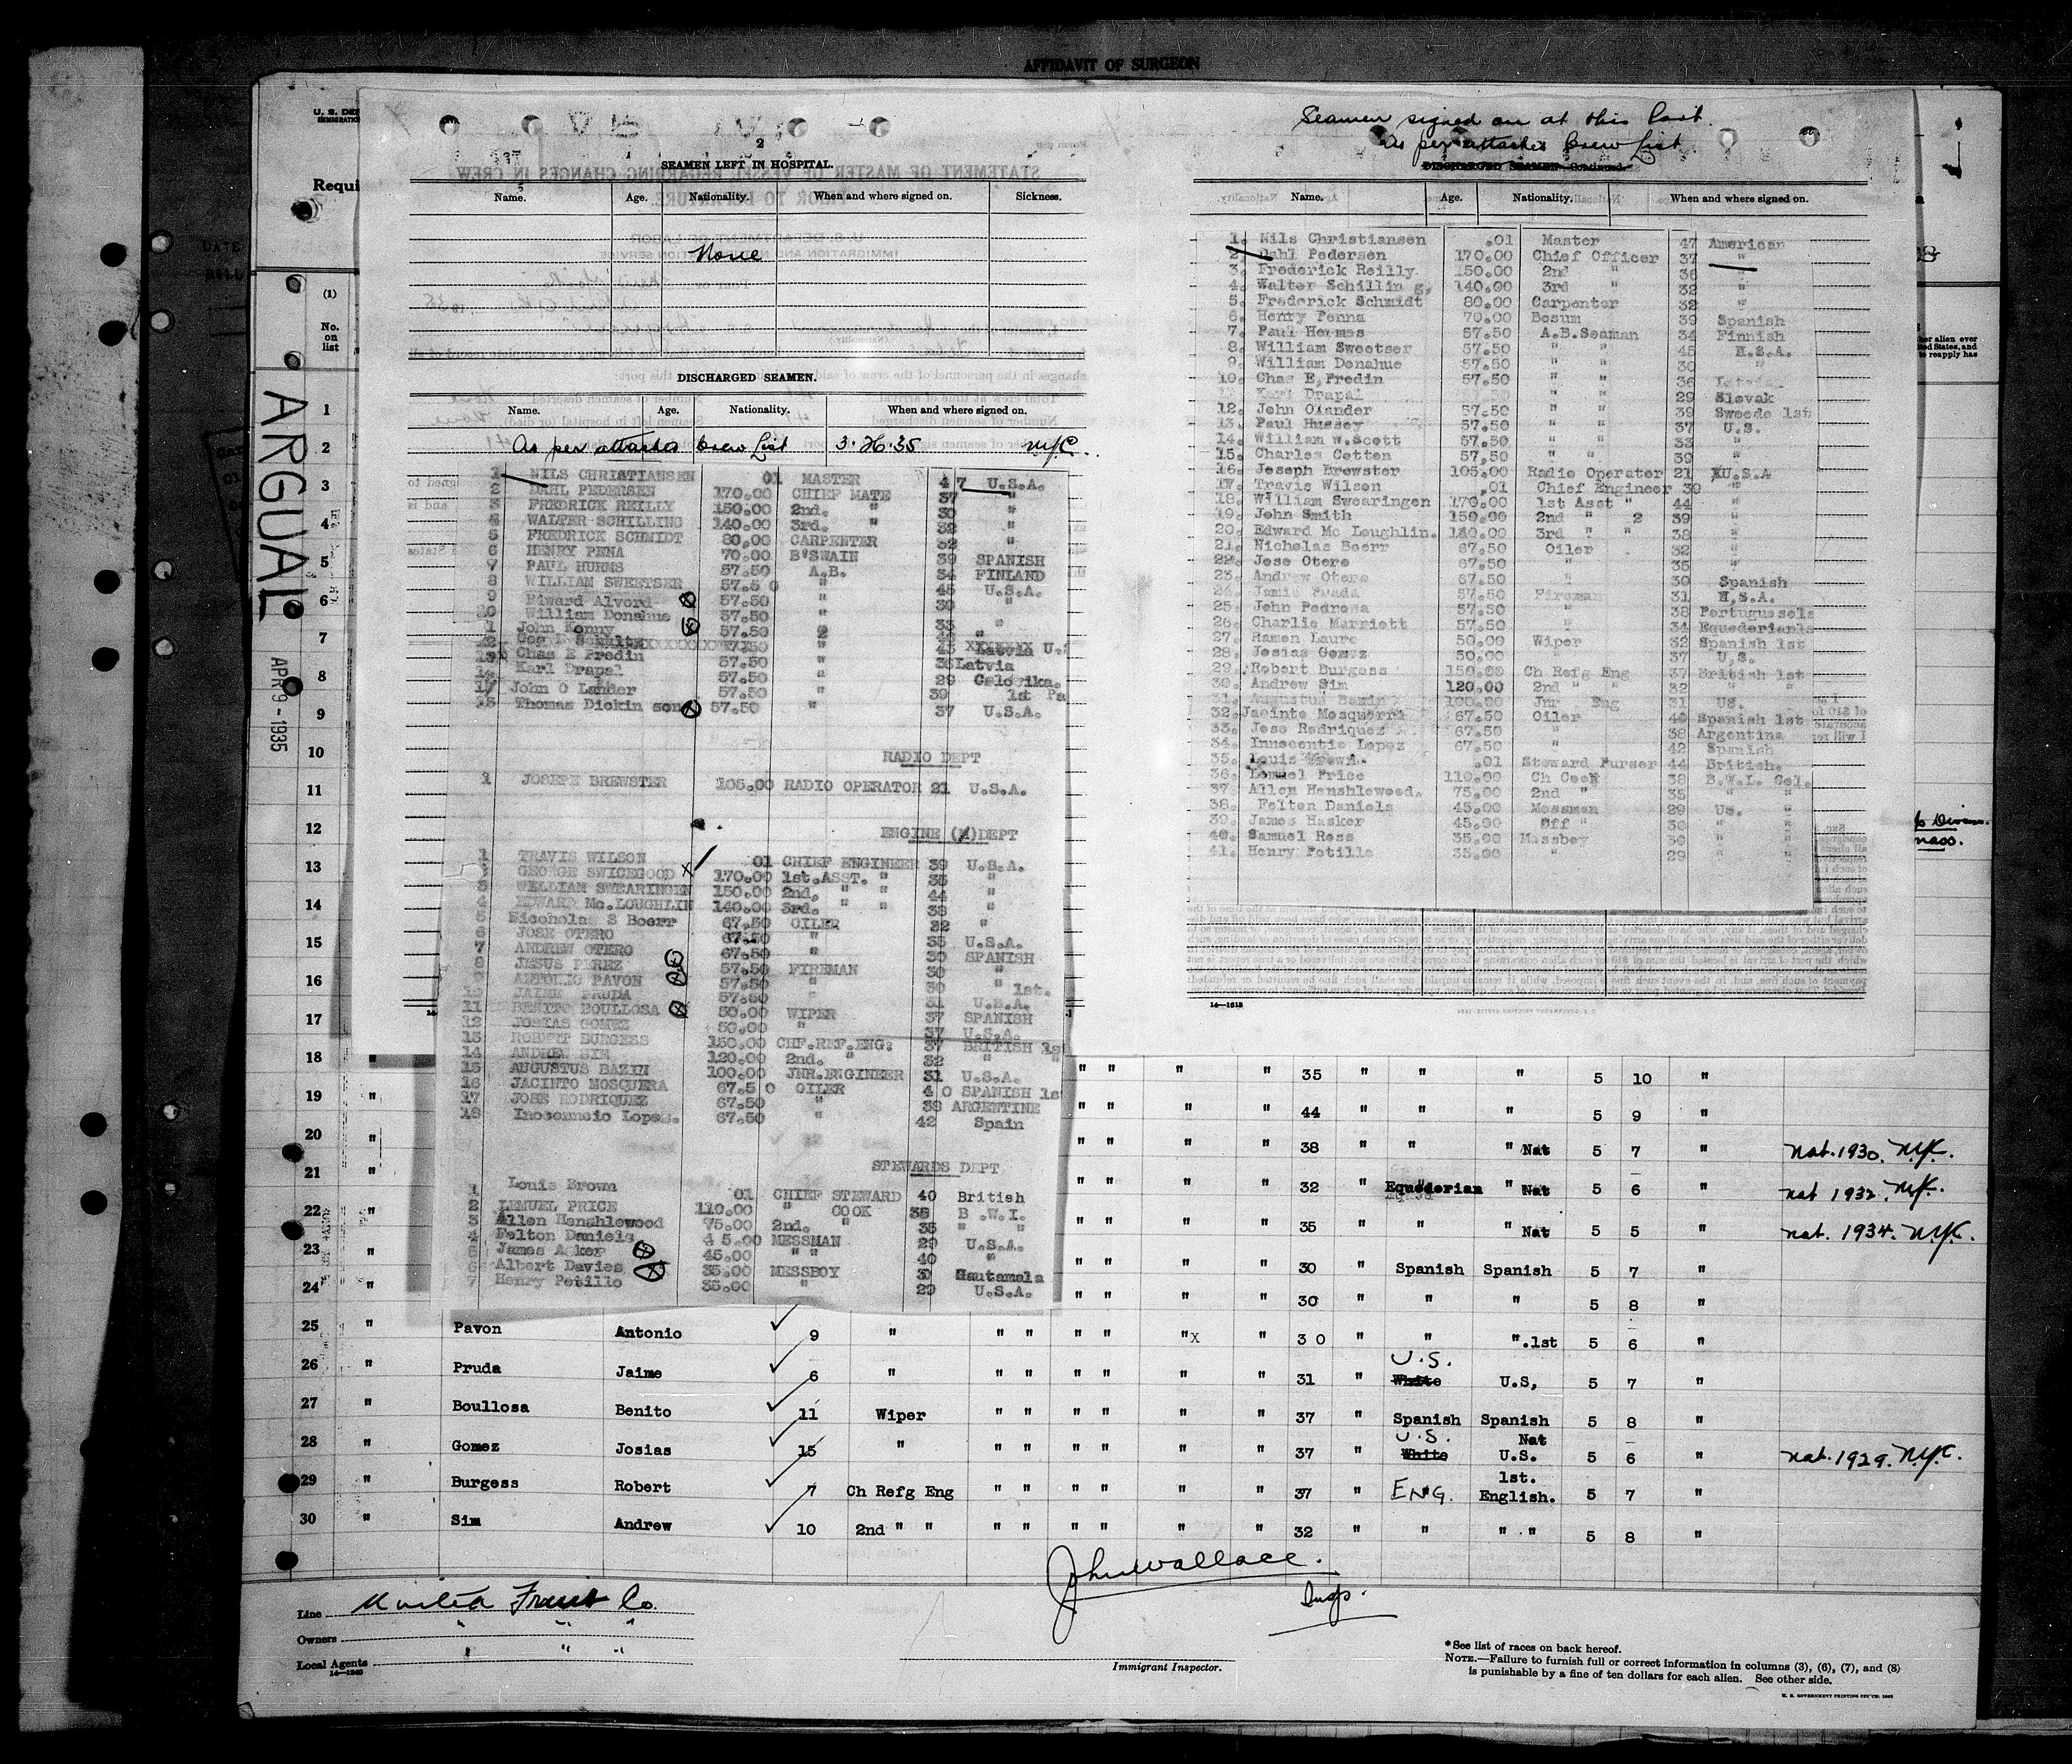 AFFIDAVIT OF SURGEON
U. S. DE
IMMIGRATION
Requi
(1)
No.
on
list
ARGUAL
APR 9 - 1935
2
SEAMEN LEFT IN HOSPITAL.
Name. Age. Nationality. When and where signed on. Sickness.
None
DISCHARGED SEAMEN.
Name. Age. Nationality. When and where signed on.
As per attached Crew List 3·26·35 N.Y.C.
1 NILS CHRISTIANSEN 01 MASTER 47 U.S.A.
2 DAHL PEDERSEN 170.00 CHIEF MATE 37 "
3 FREDRICK REILLY 150.00 2nd. " 30 "
4 WALTER SCHILLING 140.00 3rd. " 32 "
5 FREDRICK SCHMIDT 80.00 CARPENTER 32 "
6 HENRY PENA 70.00 B'SWAIN 39 SPANISH
7 PAUL HURMS 57.50 A.B. 34 FINLAND
8 WILLIAM SWEETSER 57.50 " 45 U.S.A.
9 Edward Alvord 57.50 " 30 "
10 William Donahue 57.50 "
John Konny 57.50 33 "
Chas E Fredin 57.50 " 36 Latvia
Karl Drapal 57.50 " 29
John O Lander 57.50 " 39 1st Pa
Thomas Dickin son 57.50 " 37 U.S.A.
RADIO DEPT
1 JOSEPH BREWSTER 105.00 RADIO OPERATOR 21 U.S.A.
ENGINE DEPT
1 TRAVIS WILSON 01 CHIEF ENGINEER 39 U.S.A.
GEORGE SWICEGOOD X 170.00 1st.ASST. " 35 "
3 WILLIAM SWEARINGEN 150.00 2nd. " " 44 "
4 EDWARD Mc.LOUGHLIN 140.00 3rd. " " 38 "
5 Nicoholas S Boerr 67.50 OILER 22 "
6 JOSE OTERO 67.50 " 35 U.S.A.
7 ANDREW OTERO 67.50 " 30 SPANISH
8 JESUS PEREZ 57.50 FIREMAN 30 "
9 ANTONIO PAVON 57.50 " 30 " 1st.
10 JAIME PRUDA 57.50 " 31 U.S.A.
11 BENITO BOULLOSA 50.00 WIPER 37 SPANISH
12 JOSIAS GOMEZ 50.00 " 37 U.S.A.
13 ROBERT BURGESS 150.00 CHF.REF.ENG: 37 BRITISH 1st
14 ANDREW SIM 120.00 2nd. " 32 "
15 AUGUSTUS BAZIN 100.00 JNR.ENGINEER 31 U.S.A.
16 JACINTO MOSQUERA 67.50 OILER 40 SPANISH 1s
17 JOSE RODRIQUEZ 67.50 " 38 ARGENTINE
18 Inocenncio Lopez. 67.50 " 42 Spain
STEWARDS DEPT
1 Louis Brown 01 CHIEF STEWARD 40 British
2 LEMUEL PRICE 110.00 " COOK 38 B.W.I.
3 Allen Henshlewood 75.00 2nd. " 35 " "
4 Felton Daniels 45.00 MESSMAN 29 U.S.A.
5 James Asker 45.00 " " 40 "
6 Albert Davies 35.00 MESSBOY 30 Hautamala
7 Henry Petillo 35.00 " 29 U.S.A.
Seamen signed on at this Port.
As per attached Crew List
DISCHARGED SEAMEN—Continued.
Name. Age. Nationality. When and where signed on.
1. Nils Christiansen .01 Master 47 American
2. Dahl Pedersen 170.00 Chief Officer 37 "
3. Frederick Reilly 150.00 2nd " 36 "
4. Walter Schillin g. 140.00 3rd " 32 "
5. Frederick Schmidt 80.00 Carpenter 32 "
6. Henry Penna 70.00 Bosum 39 Spanish
7. Paul Hermes 57.50 A.B.Seaman 34 Finnish
8. William Sweetser 57.50 " " 45 U.S.A.
9. William Donahue 57.50 " " 30 "
10. Chas E,Fredin 57.50 " " 36 Latvian
11. Karl Drapal 57.50 " " 29 Slovak
12. John Olander 57.50 " " 39 Swede 1st
13. Paul Hussey 57.50 " " 37 U.S.
14. William W.Scott 57.50 " " 33 "
15. Charles Cotten 57.50 " " 39 "
16. Joseph Brewster 105.00 Radio Operator 21 U.S.A
17. Travis Wilson .01 Chief Engineer 39 "
18. William Swearingen 170.00 1st Asst " 44 "
19. John Smith 150.00 2nd " 2 39 "
20. Edward Mc Loughlin. 140.00 3rd " " 38 "
21. Nicholas Boerr 67.50 Oiler 32 "
22. Jose Otero 67.50 " 35 "
23. Andrew Otero 67.50 " 30 Spanish
24. Jamie Pruda 57.50 Fireman 31 U.S.A.
25. John Pedrosa 57.50 " 38 Portuguese
26. Charlie Marriott 57.50 " 34 Equederian
27. Ramon Laure 50.00 Wiper 32 Spanish 1st
28. Josias Gomez 50.00 37 U.S.
29. Robert Burgess 150.00 Ch Refg Eng 37 British 1st
30. Andrew Sim 120.00 2nd " " 32 " "
31. Augustus Bazin 100.00 Jnr Eng 31 US.
32. Jacinto Mosquerra 67.50 Oiler 40 Spanish 1st
33. Jose Rodriquez 67.50 " 38 Argentina
34. Innocentio Lopez 67.50 " 42 Spanish
35. Louis Brown. .01 Steward Purser 44 British.
36. Lemuel Price 110.00 Ch Cook 38 B.W.I. Col.
37. Allen Henshlewood. 75.00 2nd " 35 " "
38. Felton Daniels 45.00 Messman 29 US. "
39. James Hasker 45.00 Off " 30 " "
40. Samuel Ross 35.00 Messboy 30 " "
41. Henry Potillo 35.00 " 29 " "
14—1613
1
2
3
4
5
6
7
8
9
10
11
12
13
14
15
16
17
18 " " " " " " " 35 " " " 5 10 "
19 " " " " " " " 44 " " " 5 9 "
20 " " " " " " " 38 " " " Nat 5 7 " nat. 1930. N.Y.C.
21 " " " " " " " 32 " Equederian " Nat 5 6 " nat 1932. N.Y.C.
22 " " " " " " " 35 " " " Nat 5 5 " nat. 1934. N.Y.C.
23 " " " " " " " 30 " Spanish Spanish 5 7 "
24 " " " " " " " 30 " " " 5 8 "
25 " Pavon Antonio 9 " " " " " "X " 30 " " ".1st 5 6 "
26 " Pruda Jaime 6 " " " " " " " 31 " U.S. White U.S, 5 7 "
27 " Boullosa Benito 11 Wiper " " " " " " 37 " Spanish Spanish 5 8 "
28 " Gomez Josias 15 " " " " " " " 37 " U.S. White Nat U.S. 5 6 " nat. 1929. N.Y.C.
29 " Burgess Robert 7 Ch Refg Eng " " " " " " 37 " ENG. 1st. English. 5 7 "
30 " Sim Andrew 10 2nd " " " " " " " " 32 " " " " 5 8 "
John Wallace.
Insp.
Line United Fruit Co.
Owners " " "
Local Agents " " "
14—1240
Immigrant Inspector.
*See list of races on back hereof.
NOTE.—Failure to furnish full or correct information in columns (3), (6), (7), and (8)
is punishable by a fine of ten dollars for each alien. See other side.
U. S. GOVERNMENT PRINTING OFFICE